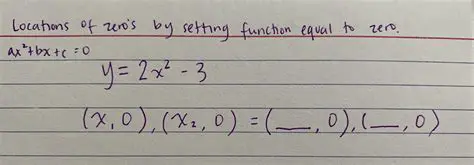 Locations of zero's by setting function equal to zero.
ax²+bx+c=0
y = 2x² - 3
(x, 0), (x₂, 0) = (__, 0), (__, 0)